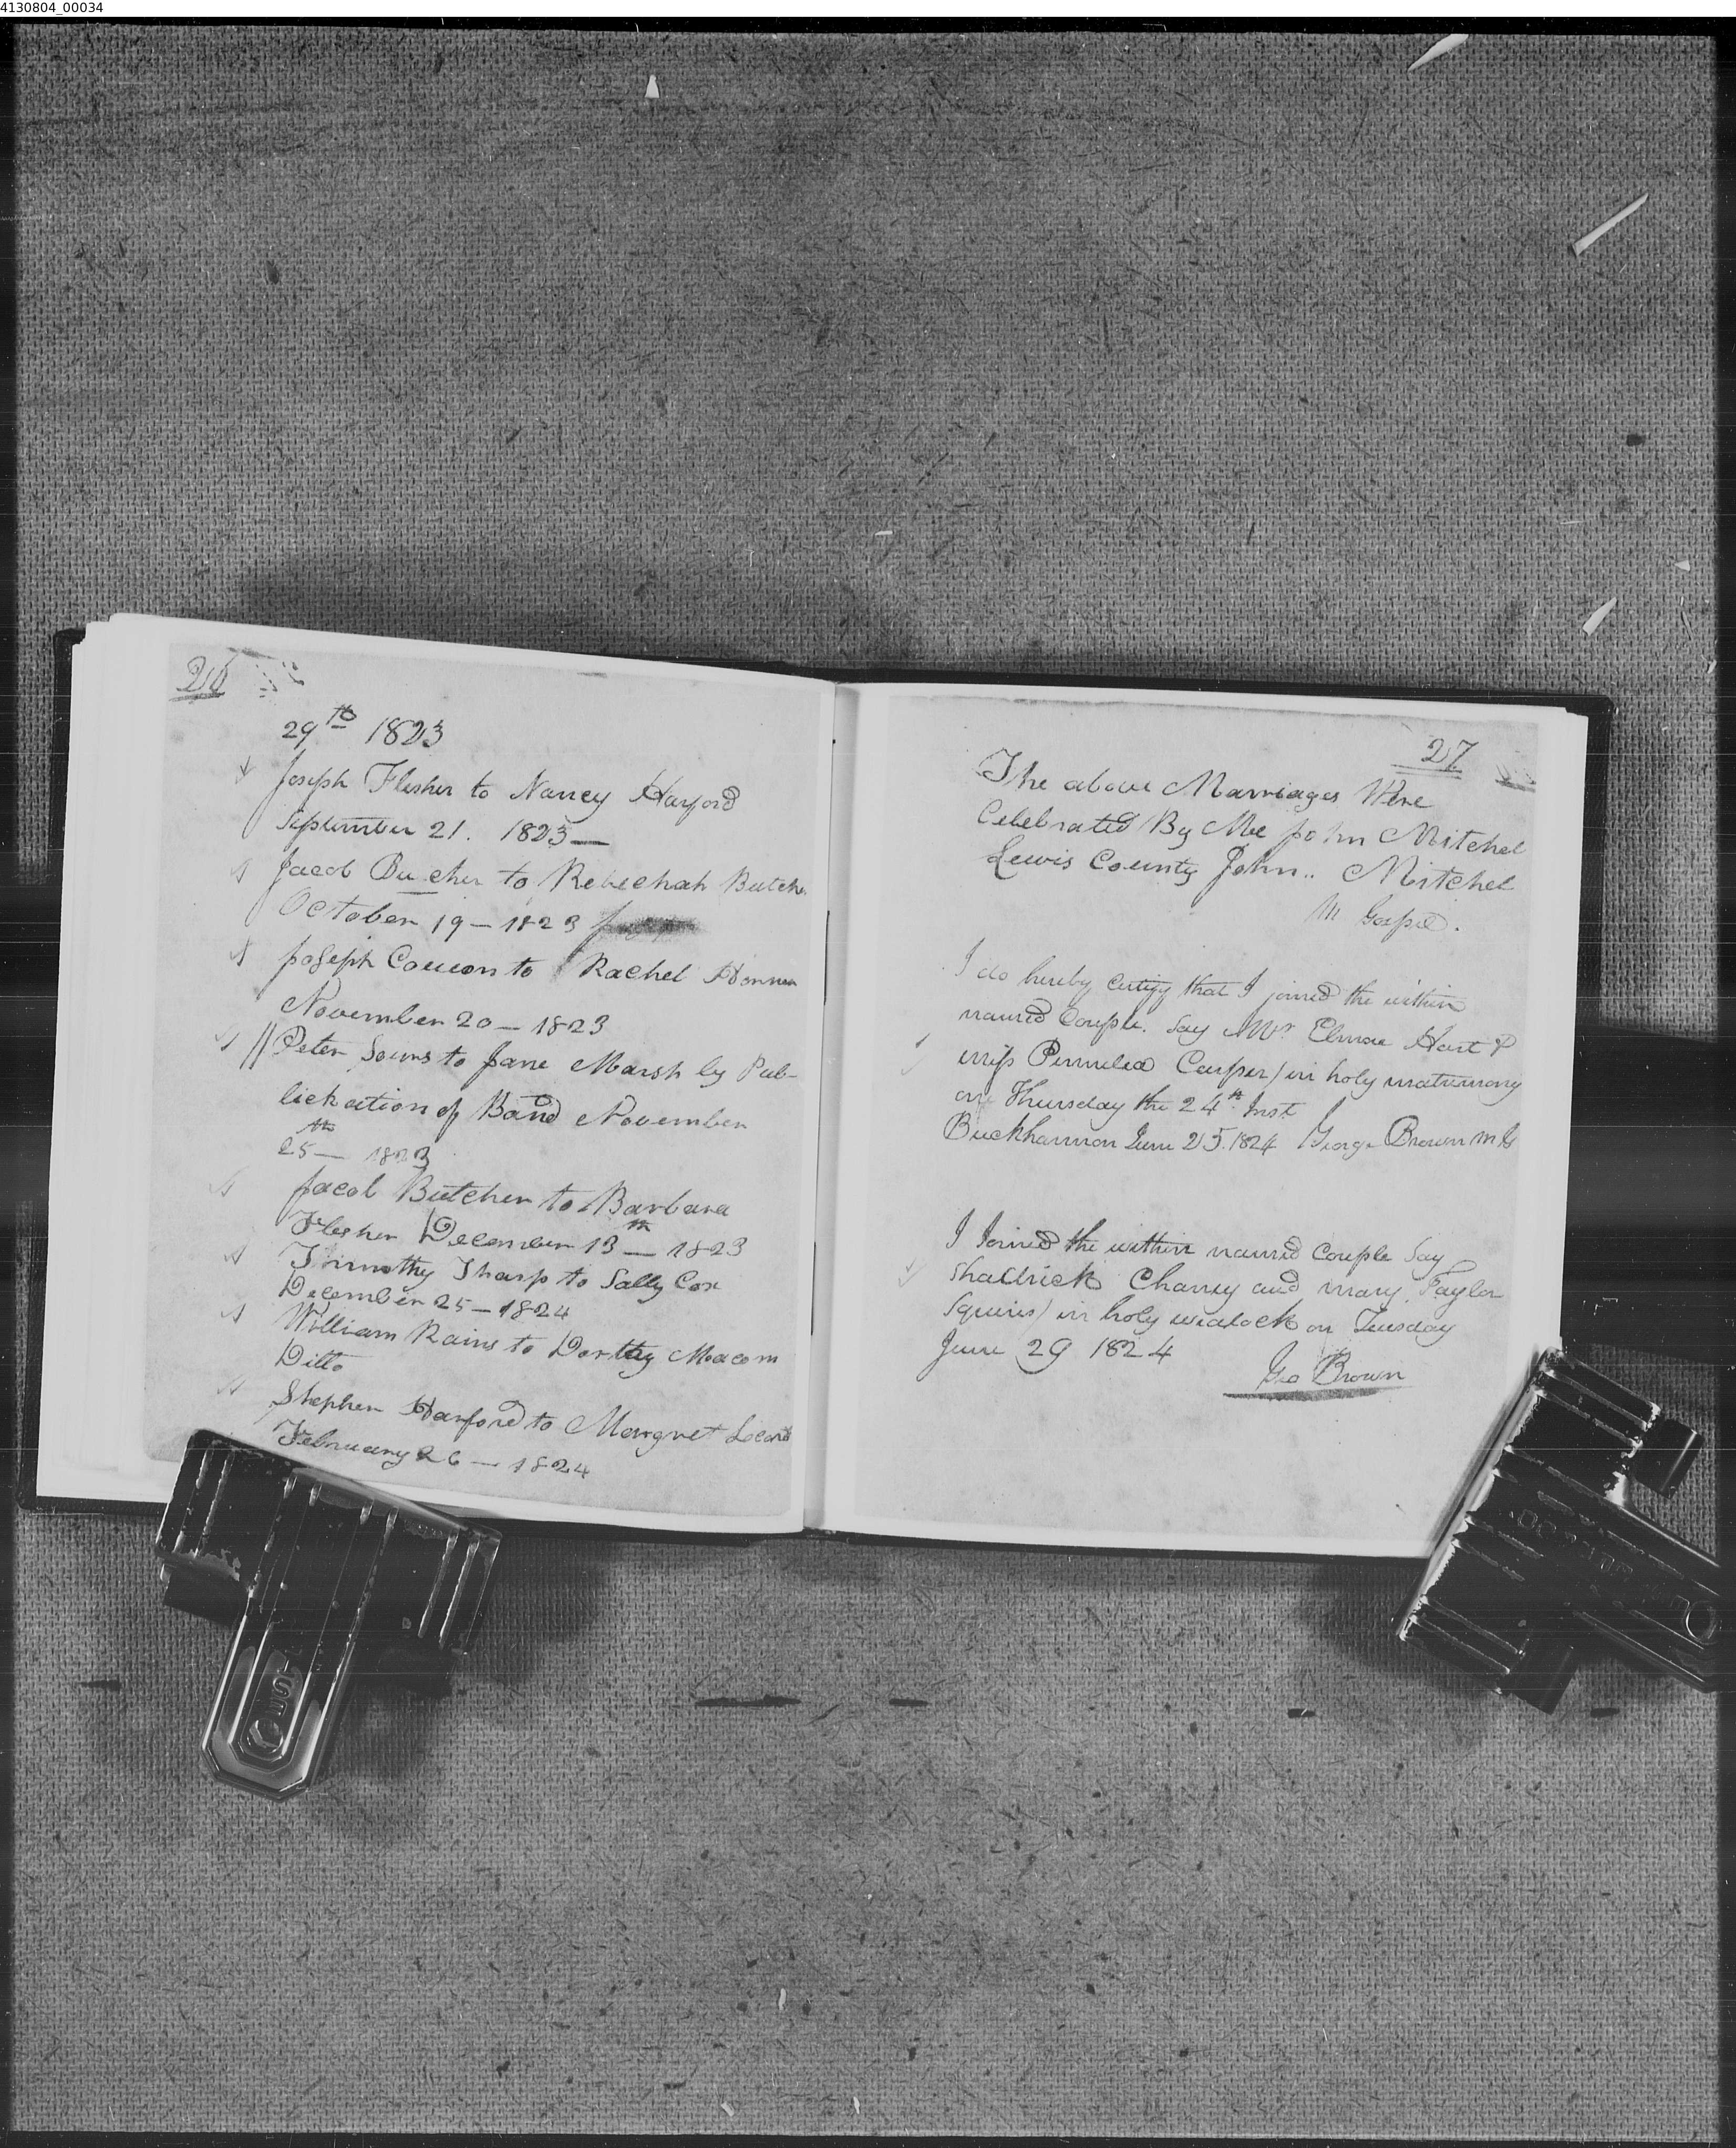 4130804_00034
26
29th 1823
Joseph Flesher to Nancy Harford
September 21. 1823 —
Jacob Bucher to Rebechah Butche
October 19 – 1823
Joseph to Rachel
November 20 – 1823
Peter to Jane Marsh by Pub-
lickation of Band November
25th – 1823
Jacob Butcher to Barbara
Flesher December 13th – 1823
Timothy Tharp to Sally Cox
December 25 – 1824
William Rains to Dorthy Macom
Ditto
Stephen Harford to Margret
February 26 – 1824
27
The above Marriages Were
Celebrated By Me John Mitchel
Lewis County John.. Mitchel
M Gospel.
I do hereby certify that I joined the within
named Couple. Say Mr. Hart &
miss Permelia / in holy matrimony
on Thursday the 24th Inst
Buckhannon June 25. 1824 George Brown M G
I Joined the within named Couple Say
Shadrick Chaney and mary Taylor
Squires / in holy wedlock on Tuesday
June 29 1824
Geo Brown
USE